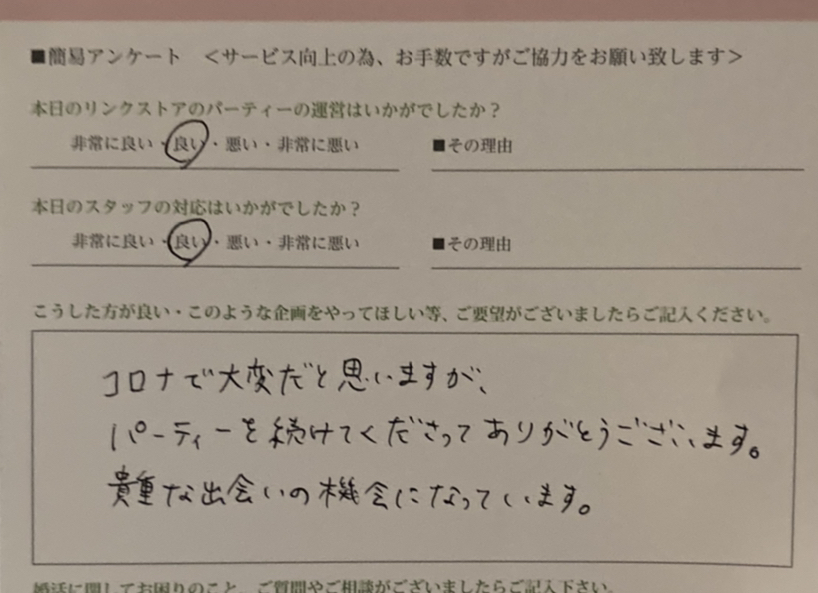 ■簡易アンケート ＜サービス向上の為、お手数ですがご協力をお願い致します＞
本日のリンクストアのパーティーの運営はいかがでしたか？
非常に良い・良い・悪い・非常に悪い ■その理由
本日のスタッフの対応はいかがでしたか？
非常に良い・良い・悪い・非常に悪い ■その理由
こうした方が良い・このような企画をやってほしい等、ご要望がございましたらご記入ください。
コロナで大変だと思いますが、
パーティーを続けてくださってありがとうございます。
貴重な出会いの機会になっています。
婚活に関してお困りのこと、ご質問やご相談がございましたらご記入下さい。